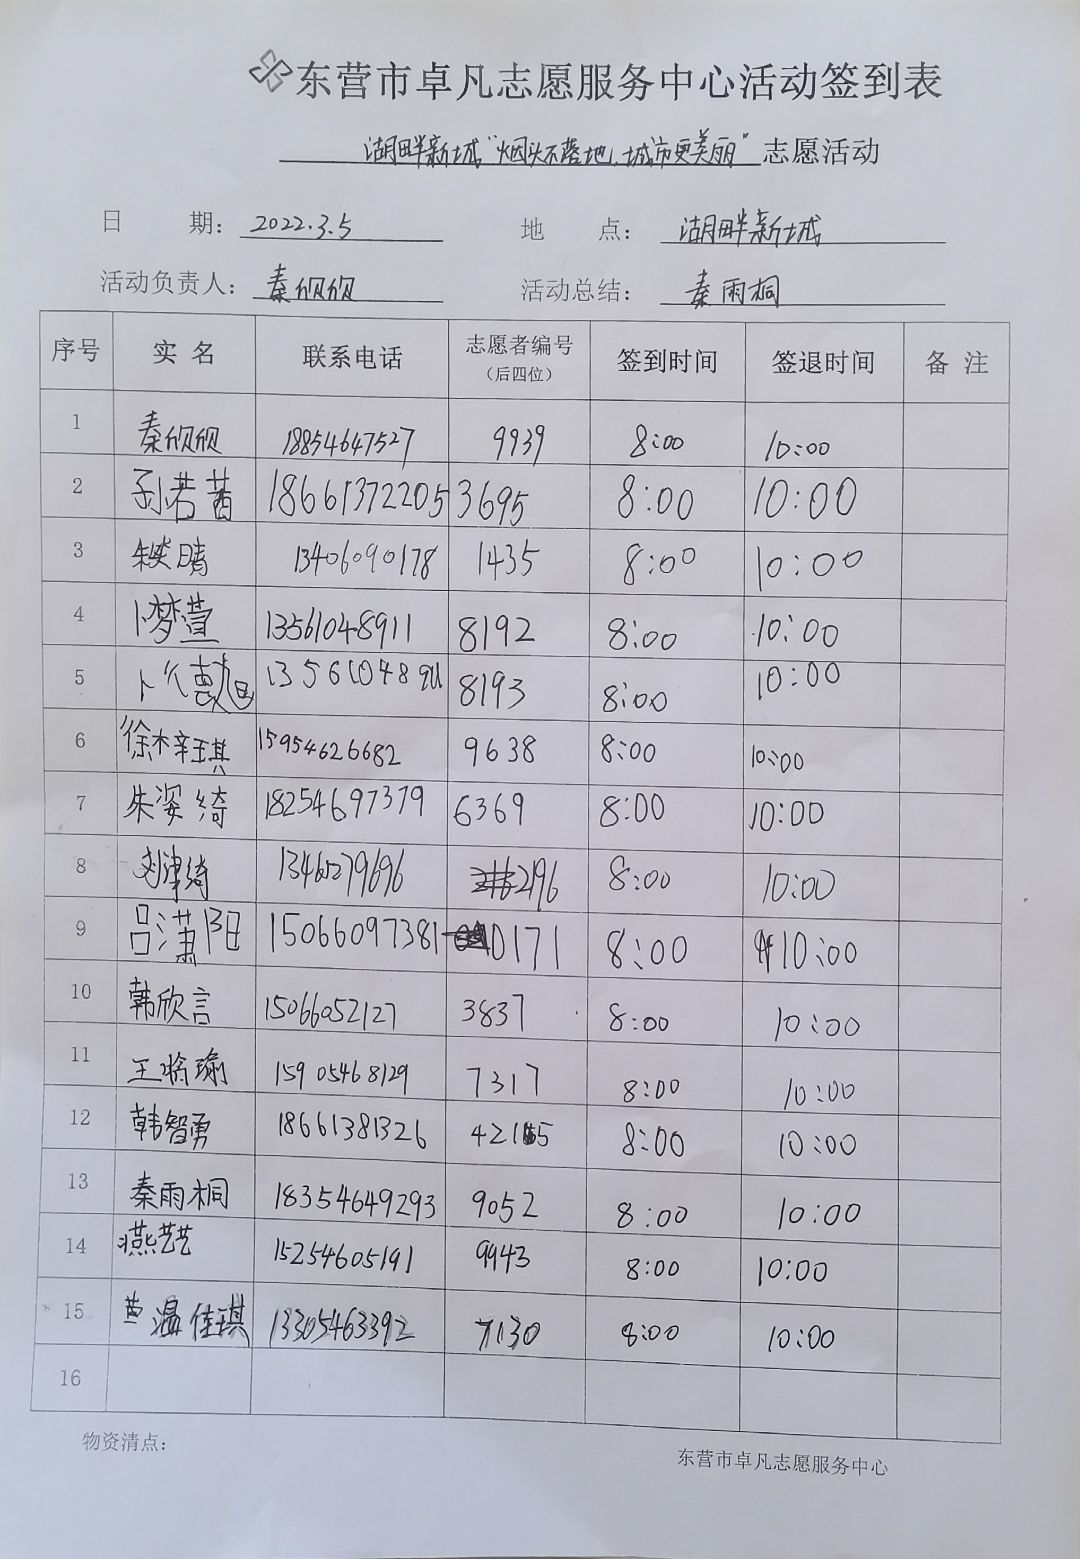 东营市卓凡志愿服务中心活动签到表
湖畔新城“烟头不落地，城市更美丽”志愿活动
日 期：2022.3.5 地 点：湖畔新城
活动负责人：秦欣欣 活动总结：秦雨桐
序号 实名 联系电话 志愿者编号（后四位） 签到时间 签退时间 备注
1 秦欣欣 18854647527 9939 8:00 10:00
2 孙若茜 18661372205 3695 8:00 10:00
3 晴 13406090178 1435 8:00 10:00
4 卜梦萱 13561048911 8192 8:00 10:00
5 卜 13561048911 8193 8:00 10:00
6 徐梓琪 15954626682 9638 8:00 10:00
7 朱姿绮 18254697379 6369 8:00 10:00
8 刘津绮 2196 8:00 10:00
9 吕潇阳 15066097381 0171 8:00 10:00
10 韩欣言 15066052127 3837 8:00 10:00
11 王 瑜 15905468129 7317 8:00 10:00
12 韩智勇 18661381326 8:00 10:00
13 秦雨桐 18354649293 9052 8:00 10:00
14 燕艺艺 15254605191 9943 8:00 10:00
15 温佳琪 13305463392 7130 8:00 10:00
16
物资清点：
东营市卓凡志愿服务中心